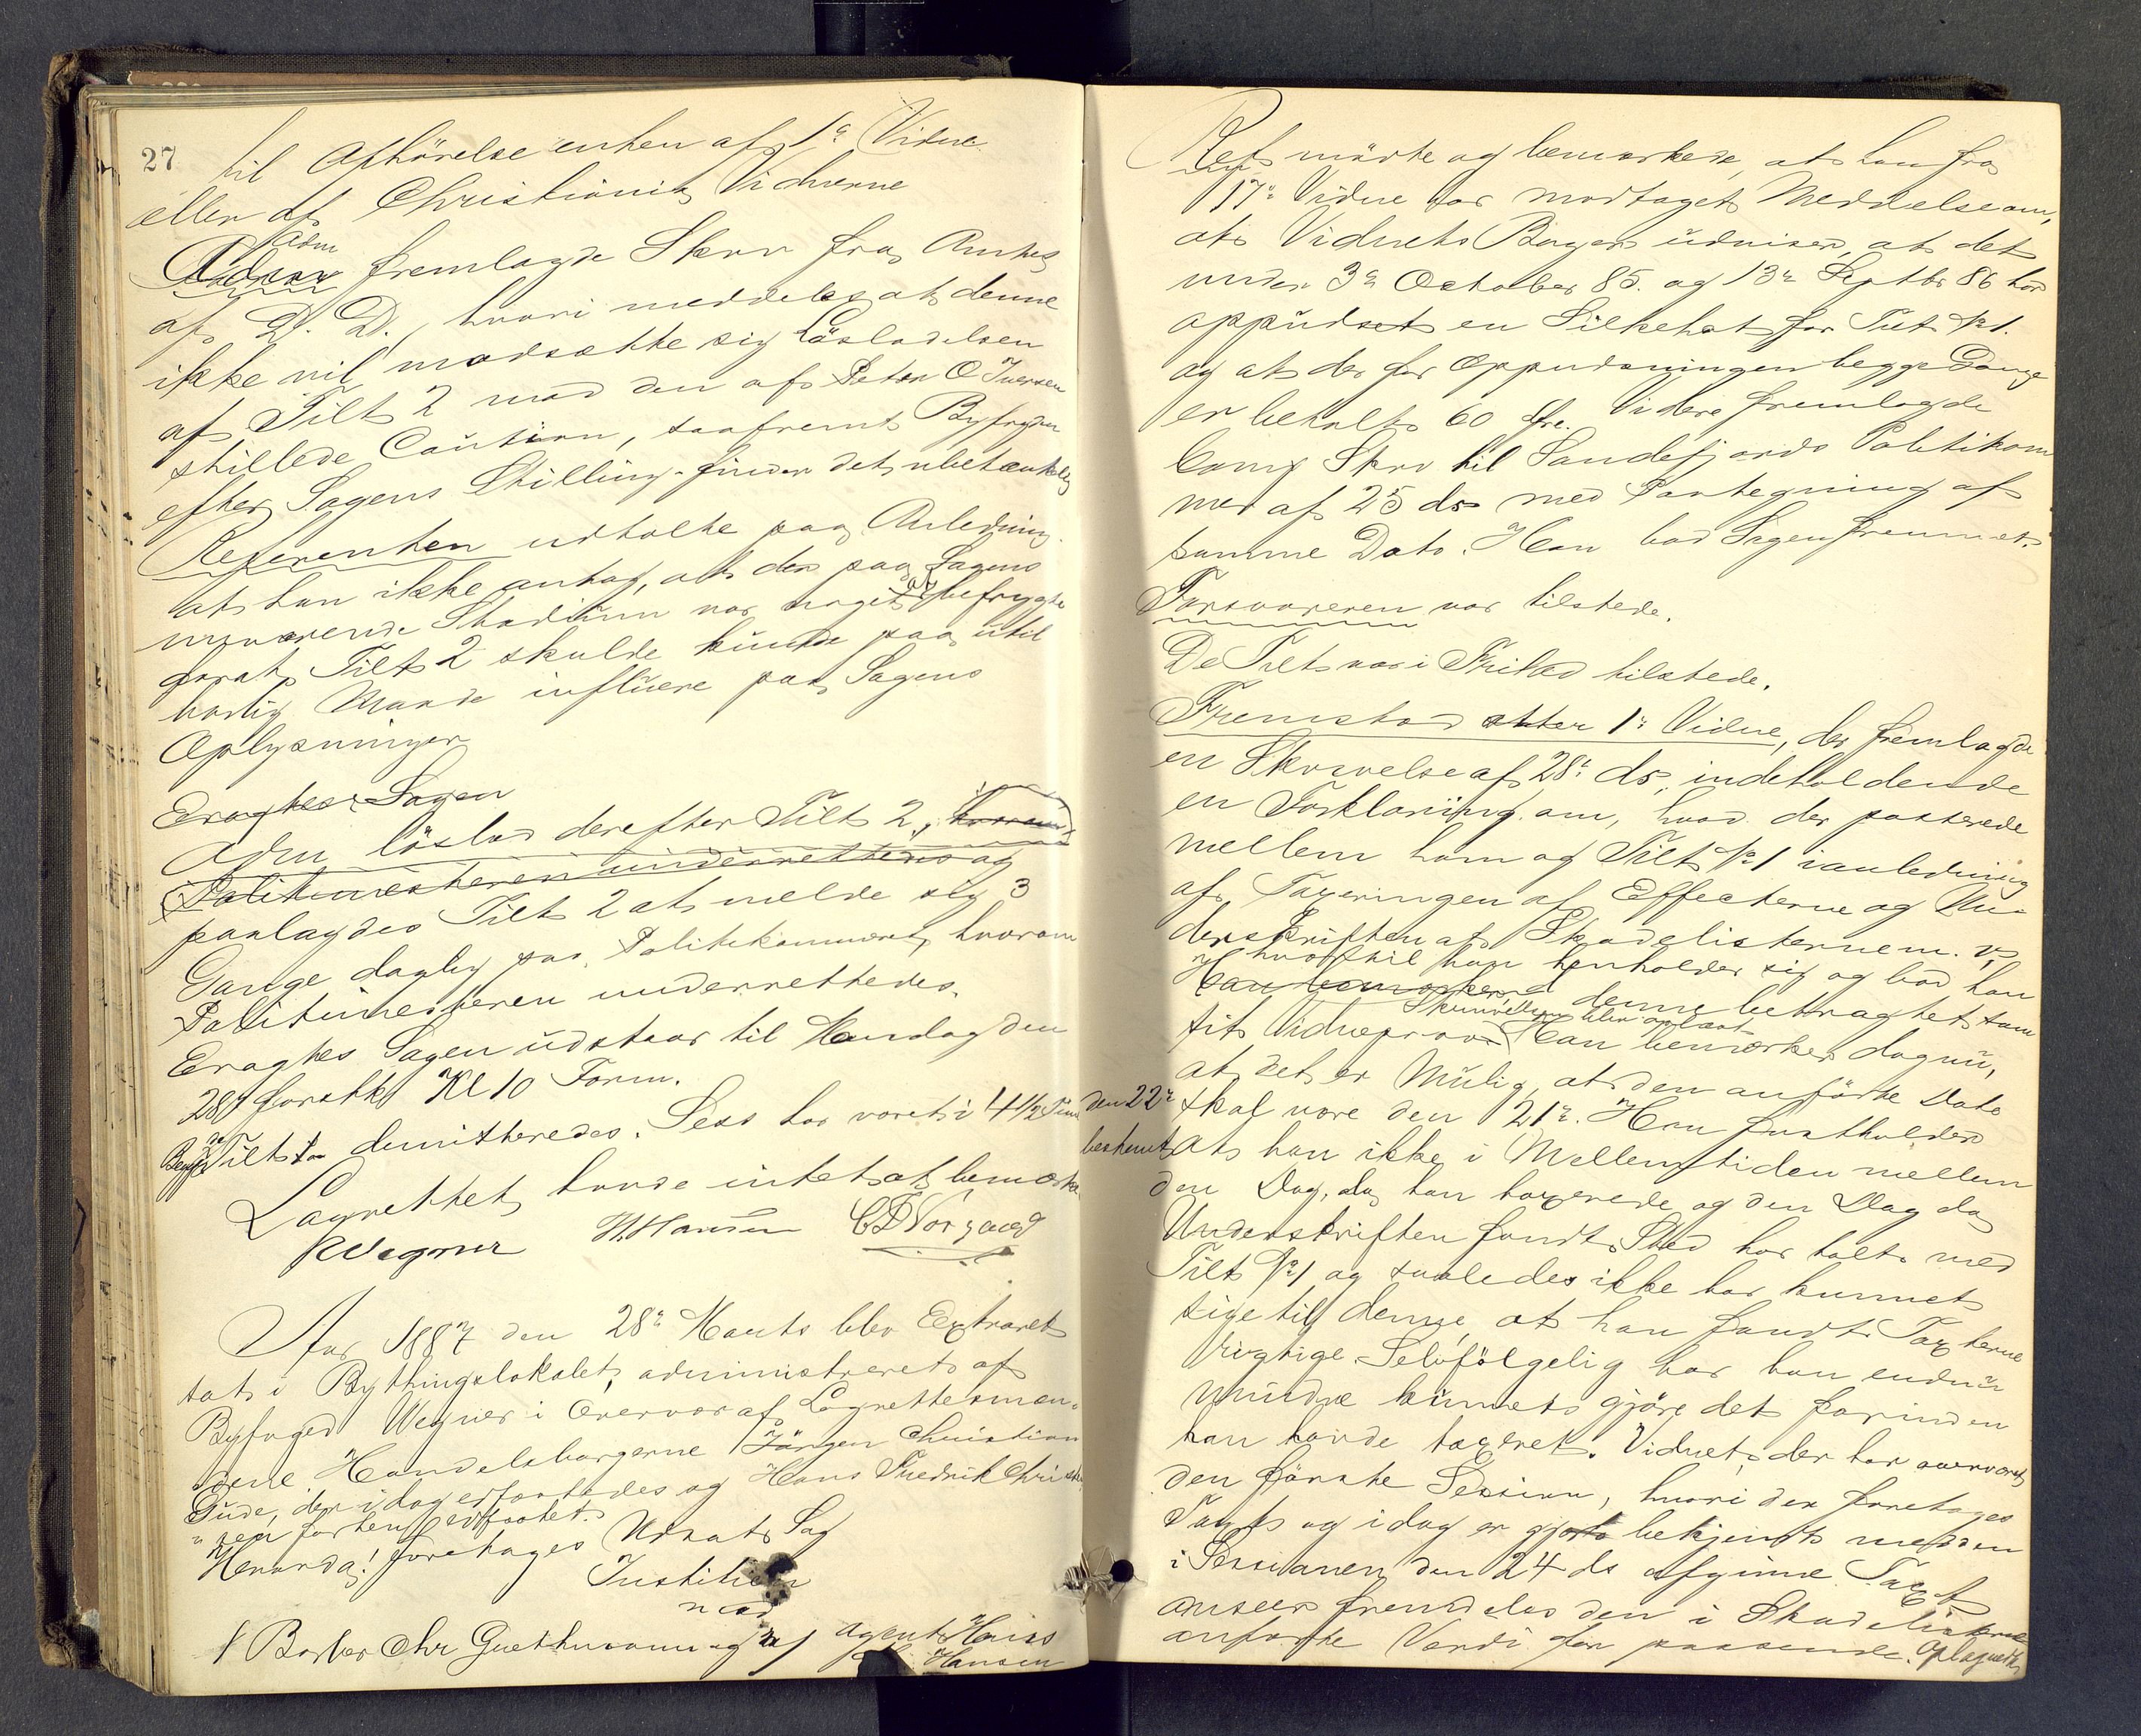 27
til Afhörelse enten af 1ste Vidne
eller af Christiania Vidnerne
Adm
fremlagde Skrv fra Amtet
af D. D., hvori meddeles at denne
ikke vil modsætte sig Lösladelsen
af Tilt 2 mod den af Peter O Iversen
stillede Caution, saafremt Byfogden
efter Sagens Stilling finder det ubetænkelig
Referenten udtalte paa Anledning
at han ikke antog, at der paa Sagens
nuværende Stadium var noget at befrygte
forat Tilt 2 skulde kunde paa util
børlig Maade influere paa Sagens
Oplysninger
Eragtes: Sagen
Adm löslod derefter Tilt 2, hvorom
Politimesteren underrettedes og
paalagdes Tilt 2 at melde sig 3
Gange daglig paa Politikammeret, hvorom
Politimesteren underrettedes.
Eragtes Sagen udstaar til Mandag den
28de førstk Kl 10 Form.
De Tilt demitteredes. Sess har varet i 4 1/2 Time
Lagrettet havde intet at bemærke
RWegner H. Hansen
Aar 1887 den 28de Marts blev Extraret
sat i Bythingslokalet, administreret af
Byfoged Wegner i Overvær af Lagrettesmæn-
dene Handelsborgerne Jörgen Christian
Gude, der idag edfæstedes og Hans Fredrik Christian
sen förhen edfæstet.
Hvorda! foretages Udsat Sag
Justitien
mod
1 Barber Chr Guethmann og 2 Agent Hans
Hansen
Refr mödte og bemærkede, at han fra
17de Vidne har modtaget Meddelse om,
at Vidnets Bøger udviser, at det
under 3de October 85. og 13de Septbr 86 har
oppudset en Silkehat for Tilt No 1.
og at der for Oppudsningen begge Gange
er betalt 60 Øre. Videre fremlagde
Comp Skrv til Sandefjords Politikam
mer af 25 ds med Paategning af
samme Dato. Han bad Sagen fremmet.
Forsvareren var tilstede.
De Tilt var i Frihed tilstede.
Fremstod atter 1ste Vidne, der fremlagde
en Skrivelse af 28de ds, indeholdende
en Forklaring om, hvad der passerede
mellem ham og Tilt No 1 i anledning
af Taxeringen af Effecterne og Un-
derskriften af Skadelisterne m. v,
hvortil han henholder sig og bad han
Han bemærkede denne betragtet som
Skrivelsen blev oplæst
sit Vidneprov. Han bemærker dog nu,
at det er Mulig, at den anförte Dato
den 22de skal være den 21de. Han fastholder
bestemt at han ikke i Mellemtiden mellem
den Dag, da han taxerede og den Dag da
Underskriften fandt Sted har talt med
Tilt No 1 og saaledes ikke har kunnet
sige til denne, at han fandt Taxterne
rigtige. Selvfölgelig har han endnu
mindre kunnet gjöre det forinden
han havde taxeret. Vidnet, der har overværet
den förste Session, hvori der foretoges
Taxt og idag er gjort bekjendt med den
i Sessionen den 24 ds afgivne Taxt
anseer fremdeles den i Skadelisterne
anførte Værdi for passende. Oplagnett